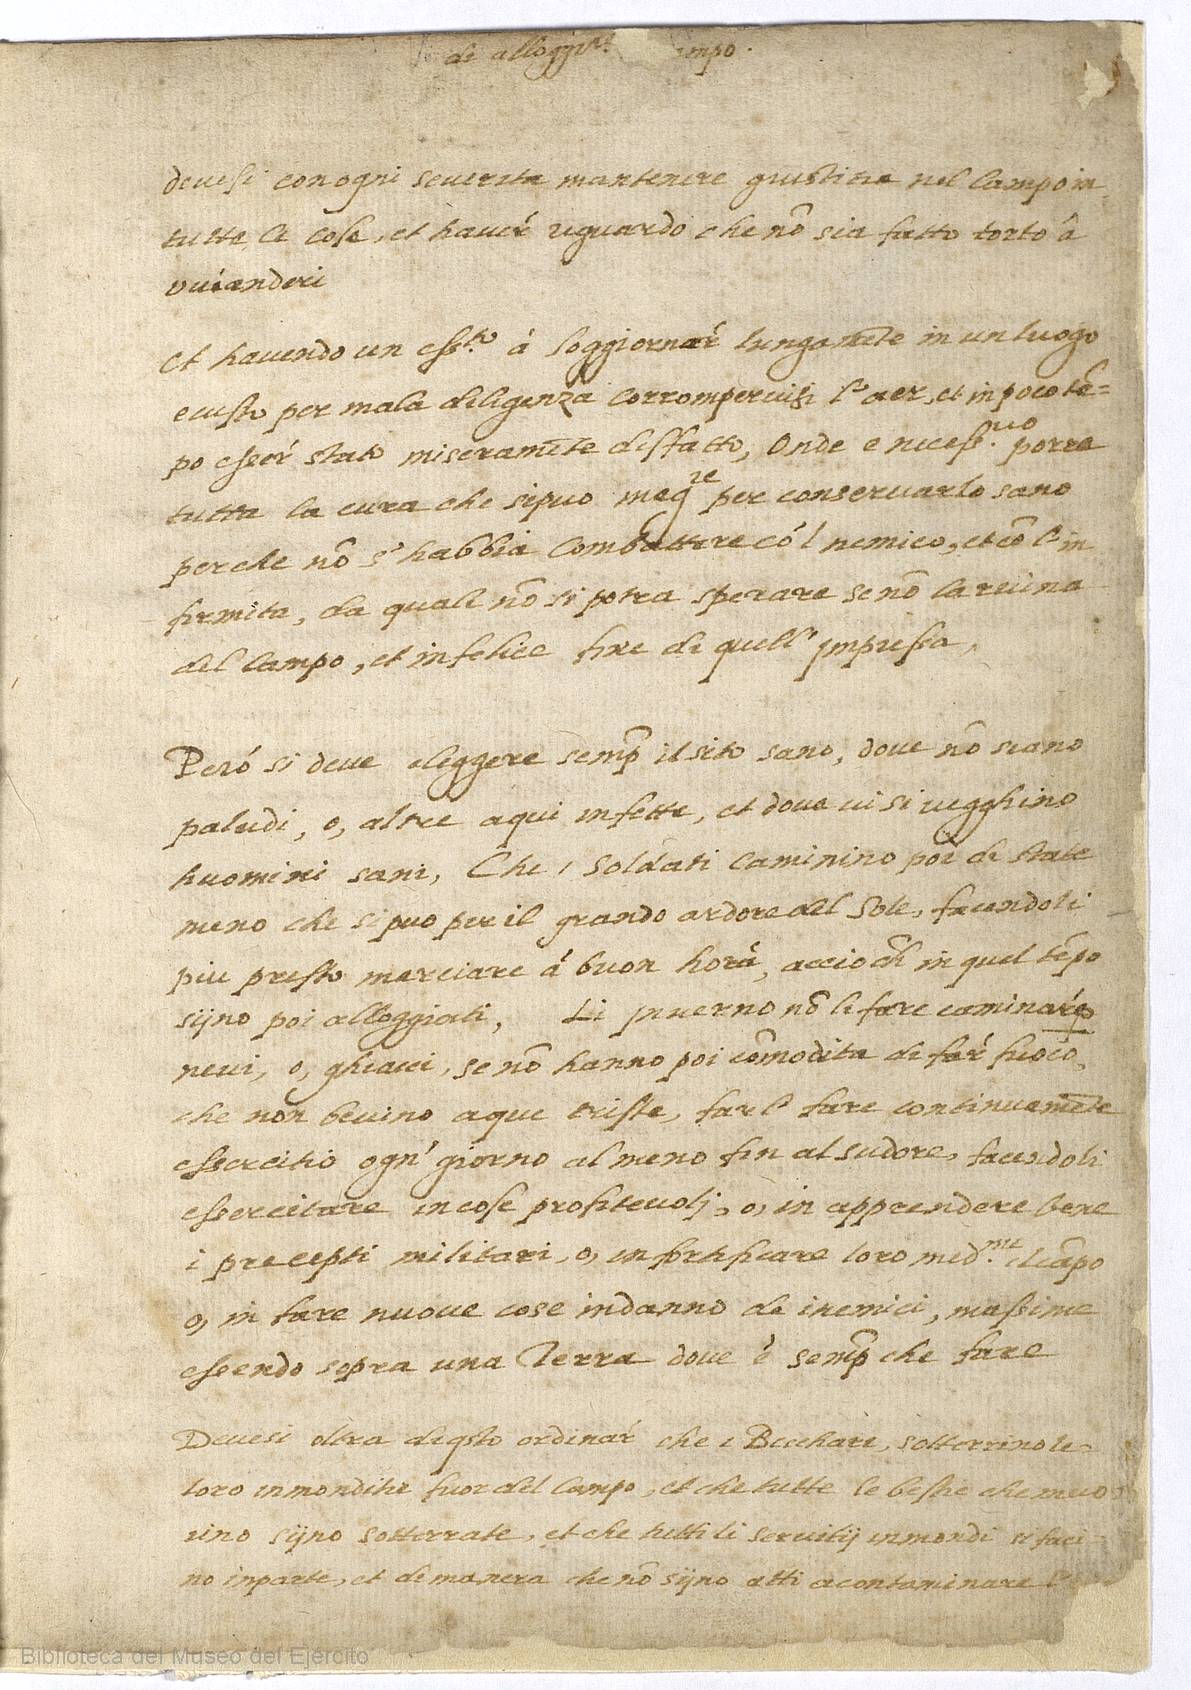 de alloggi.ti mpo.
devesi con ogni severita mantenere giustitia nel Campo in
tutte le cose, et haver riguardo che nõ sia fatto torto à
vivanderi
Et havendo un ess.to à soggiornar lungamẽte in un luogo
e custo per mala diligenza corrompervisi l'aer, et in poco tẽ=
po esser stato miseramẽte disfatto, Onde e necess.rio porre
tutta la cura che si puo per conservarlo sano
perche nõ s'habbia Combattere cõ'l nemico, et cõ l'in
firmita, da quali nõ si potra sperare se nõ la ruina
del Campo, et infelice fine di quell' jmpresa,
Però si deve eleggere semp il sito sano, dove nõ siano
paludi, o, altre aqui infette, et dove vi si vegghino
huomini sani, Che i soldati caminino poi di state
meno che si puo per il grando ardore del Sole, facendoli
piu presto marciare à buon horà, acciò ch in quel tẽpo
sijno poi alloggiati, Li jnverno nõ li fare caminar p
nevi, o, ghiacci, se nõ hanno poi cõmodita di far fuoco,
che non bevino aque triste, farli fare continuamẽte
essercitio ogn' giorno al meno fin al sudore, facendoli
essercitare in cose profitevolj, o, in apprendere bene
i precepti militari, o, in fortificare loro med.mi il cãpo
o, in fare nuove cose in danno de inemici, massime
essendo sopra una Terra dove è semp che fare
Devesi oltra di qsto ordinar che i Becchari, sotterrino le
loro inmonditie fuor del Campo, et che tutte le bestie che muo
rino sijno sotterrate, et che tutti li servitij inmondi si faci
no in parte, et de manera che nõ sijno atti a contaminare l'
Biblioteca del Museo del Ejército